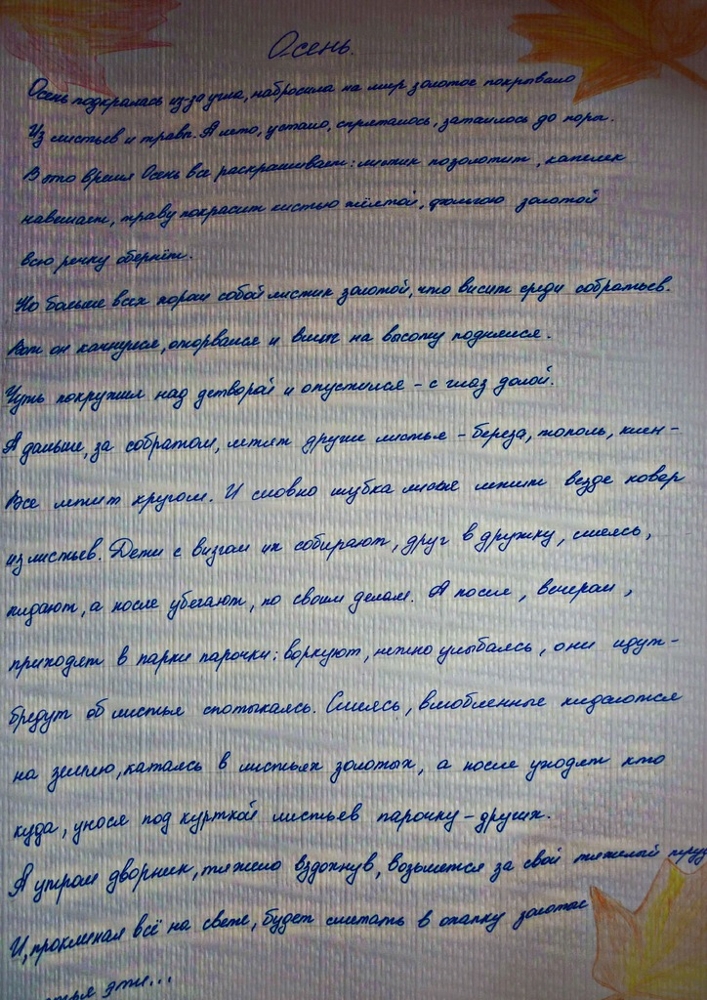 Осень.
Осень подкралась из-за угла, набросила на мир золотое покрывало
Из листьев и травы. А лето, устало, спряталось, затаилось до поры.
В это время Осень все раскрашивает: листик позолотит, капелек
навешает, траву покрасит кистью жёлтой, фольгою золотой
всю речку обернёт.
Но больше всех горд собой листик золотой, что висит среди собратьев.
Вот он качнулся, оторвался и ввысь на высоту поднялся.
Чуть покружил над детворой и опустился - с глаз долой.
А дальше, за собратом, летят другие листья - береза, тополь, клен -
Все летит кругом. И словно шубка лисья лежит везде ковер
из листьев. Дети с визгом их собирают, друг в дружку, смеясь,
кидают, а после убегают, по своим делам. А после, вечерам,
приходят в парки парочки: воркуют, нежно улыбаясь, они идут-
бредут об листья спотыкаясь. Смеясь, влюбленные кидаются
на землю, катаясь в листьях золотых, а после уходят кто
куда, унося под курткой листьев парочку - других.
А утром дворник, тяжело вздохнув, возьмется за свой тяжелый труд
И, проклиная всё на свете, будет сметать в охапку золотые
эти...